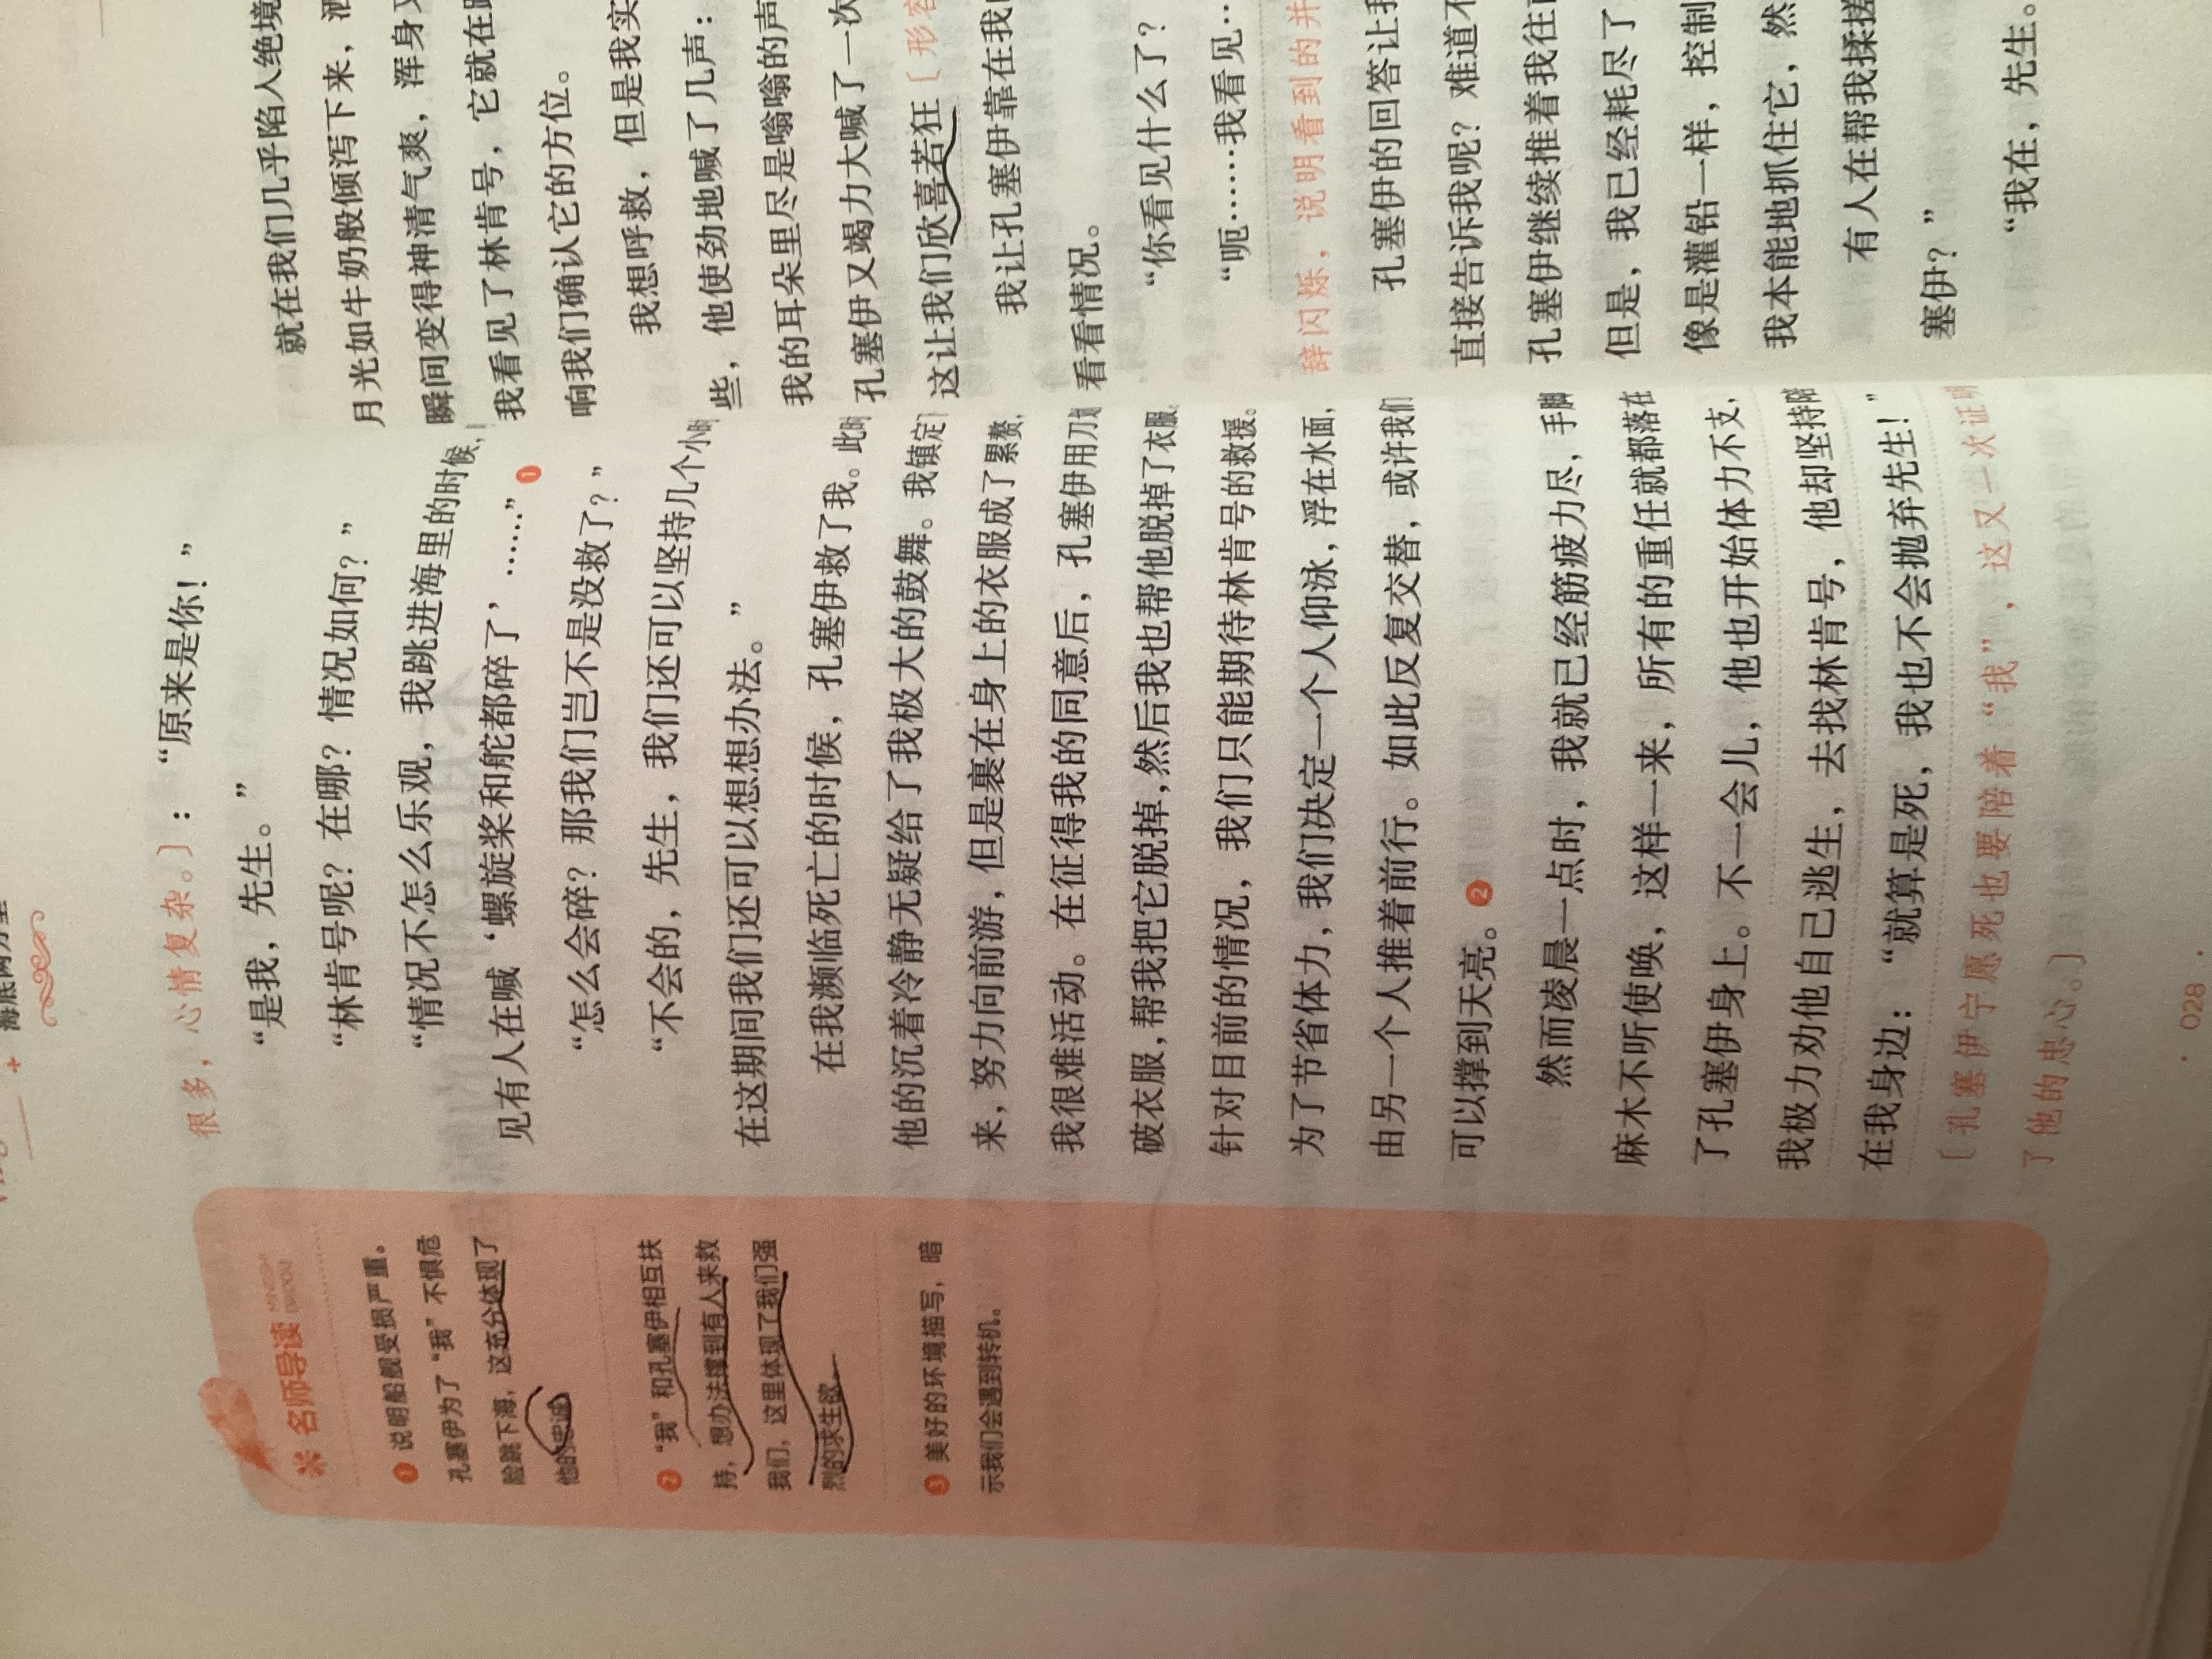 名师导读
MINGSHI
DAODU
① 说明船舰受损严重。
孔塞伊为了“我”不惧危
险跳下海，这充分体现了
他的忠诚
② “我”和孔塞伊相互扶
持，想办法撑到有人来救
我们，这里体现了我们强
烈的求生欲。
③ 美好的环境描写，暗
示我们会遇到转机。
很多，心情复杂。］：“原来是你！”
“是我，先生。”
“林肯号呢？在哪？情况如何？”
“情况不怎么乐观，我跳进海里的时候，
见有人在喊‘螺旋桨和舵都碎了’……”①
“怎么会碎？那我们岂不是没救了？”
“不会的，先生，我们还可以坚持几个小时
在这期间我们还可以想想办法。”
在我濒临死亡的时候，孔塞伊救了我。此时
他的沉着冷静无疑给了我极大的鼓舞。我镇定
来，努力向前游，但是裹在身上的衣服成了累赘，
我很难活动。在征得我的同意后，孔塞伊用刀划
破衣服，帮我把它脱掉，然后我也帮他脱掉了衣服
针对目前的情况，我们只能期待林肯号的救援。
为了节省体力，我们决定一个人仰泳，浮在水面，
由另一个人推着前行。如此反复交替，或许我们
可以撑到天亮。②
然而凌晨一点时，我就已经筋疲力尽，手脚
麻木不听使唤，这样一来，所有的重任就都落在
了孔塞伊身上。不一会儿，他也开始体力不支，
我极力劝他自己逃生，去找林肯号，他却坚持陪
在我身边：“就算是死，我也不会抛弃先生！”
［孔塞伊宁愿死也要陪着“我”，这又一次证明
了他的忠心。］
· 028 ·
就在我们几乎陷入绝境
月光如牛奶般倾泻下来，洒
瞬间变得神清气爽，浑身又
我看见了林肯号，它就在距
响我们确认它的方位。
我想呼救，但是我实
些，他使劲地喊了几声：
我的耳朵里尽是嗡嗡的声
孔塞伊又竭力大喊了一次
这让我们欣喜若狂［形容
我让孔塞伊靠在我
看看情况。
“你看见什么了？
“呃……我看见…
辞闪烁，说明看到的并
孔塞伊的回答让我
直接告诉我呢？难道不
孔塞伊继续推着我往前
但是，我已经耗尽了
像是灌铅一样，控制
我本能地抓住它，然
有人在帮我揉搓
塞伊？”
“我在，先生。